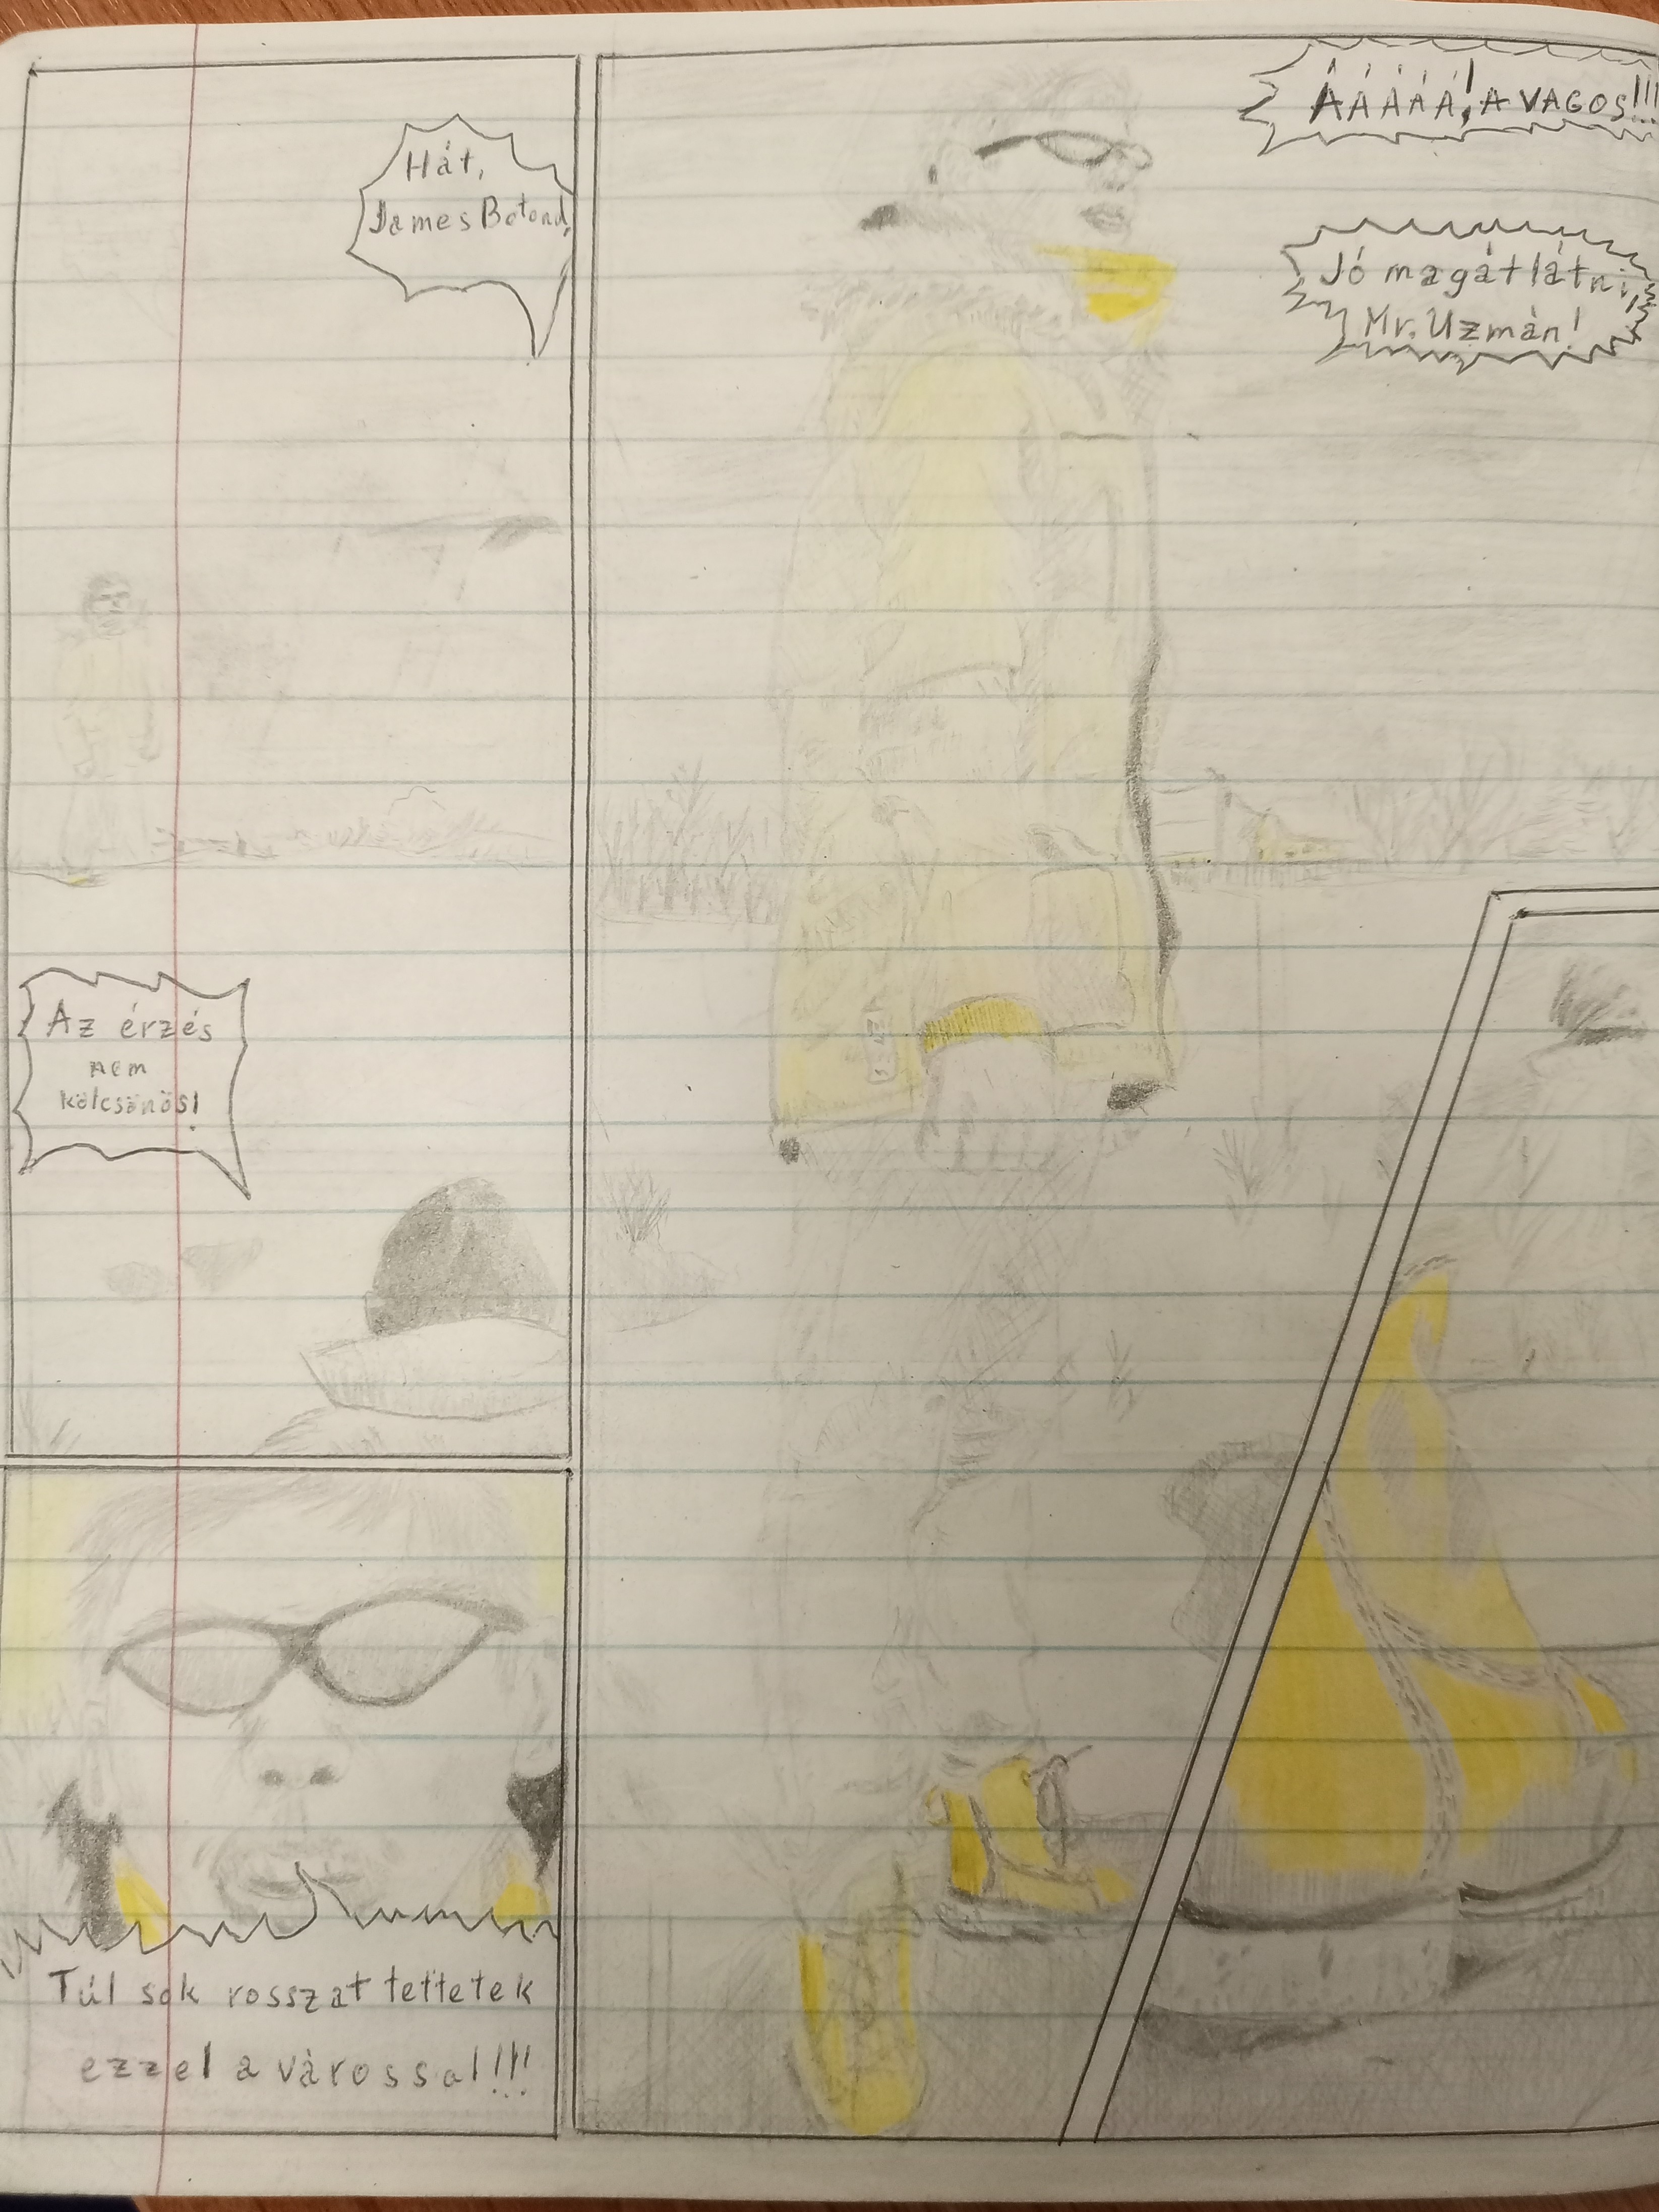 Hát,
James Botond,
Az érzés
nem
kölcsönös!
Túl sok rosszat tettetek
ezzel a várossal!!!
ÁÁÁÁÁ! A VAGOS!!!
Jó magát látni,
Mr. Uzmán!